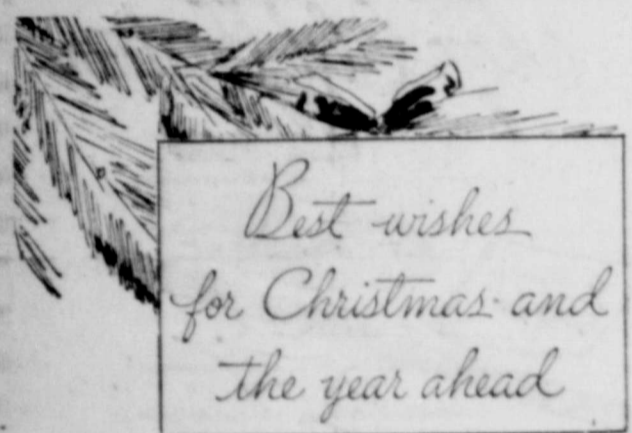 Best wishes
for Christmas and
the year ahead